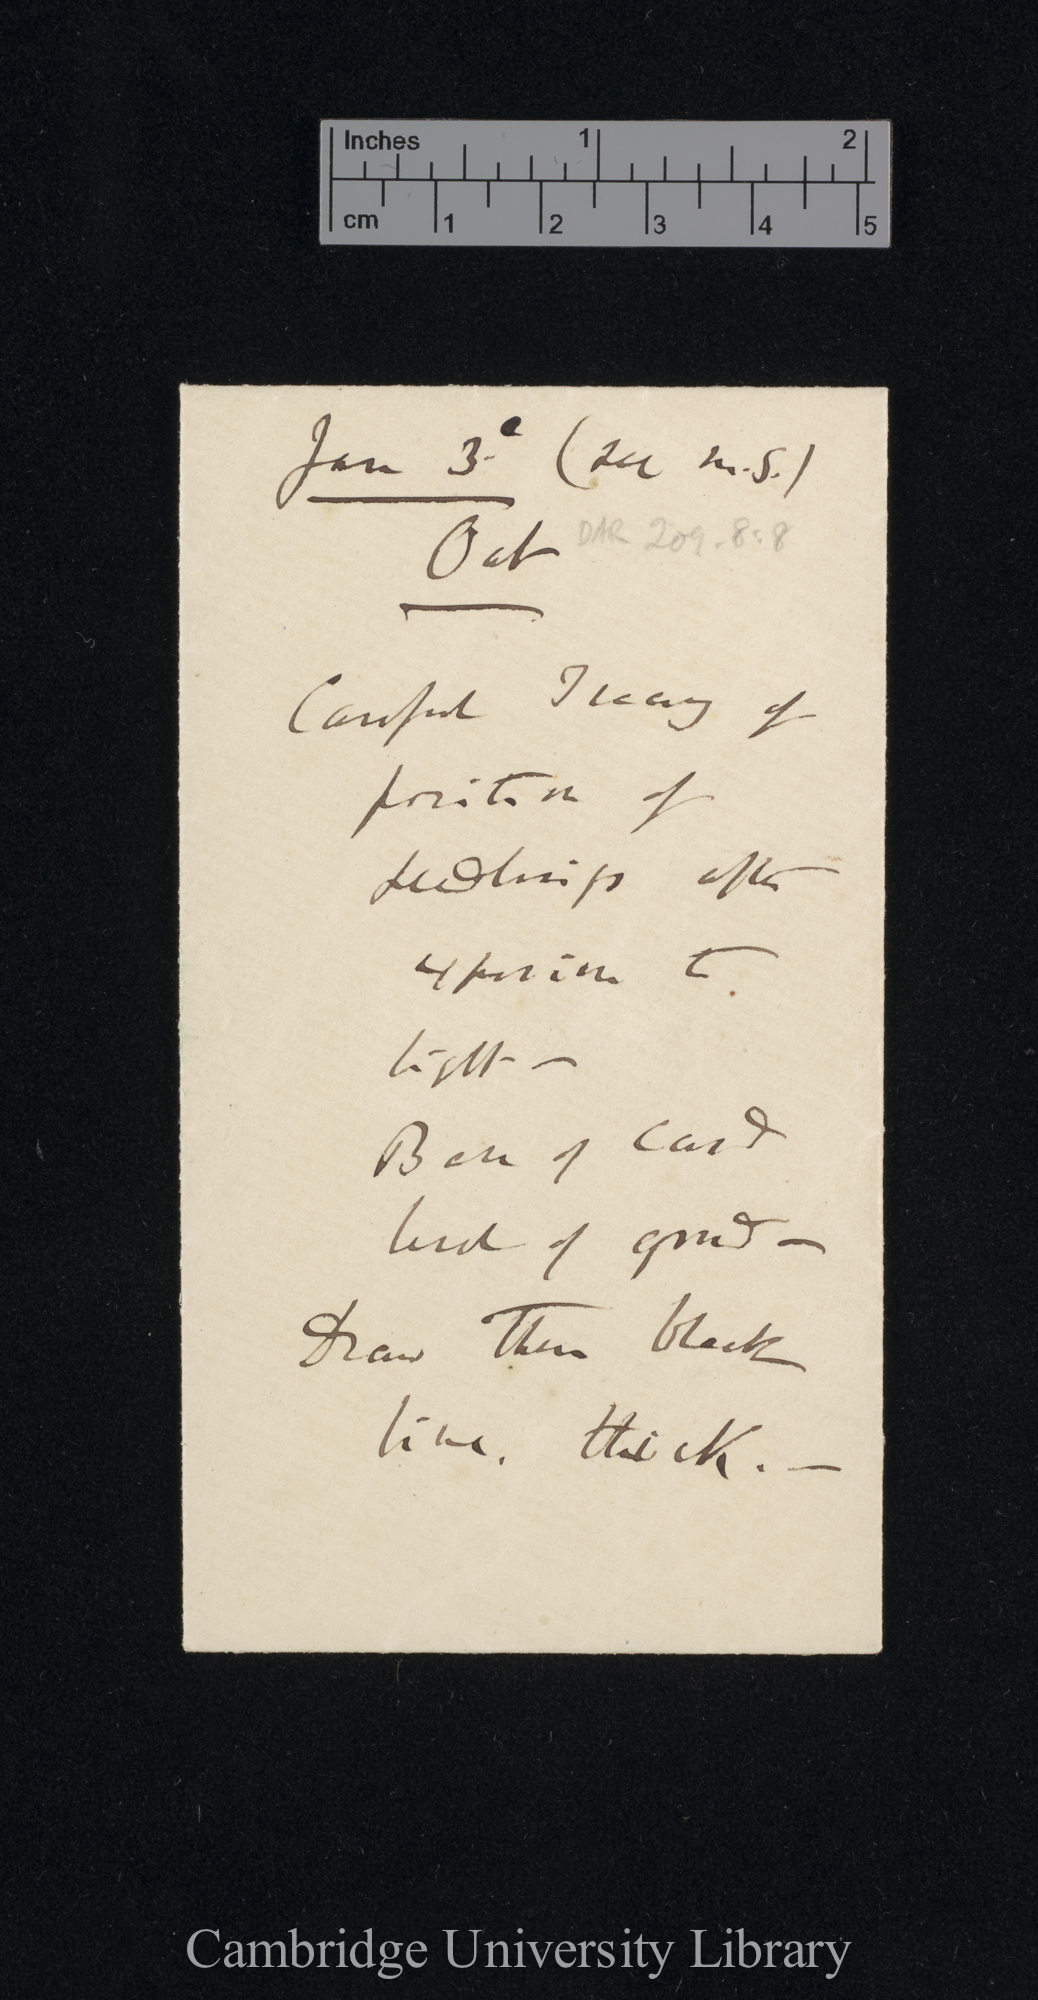 Inches 1 2
cm 1 2 3 4 5
Jan 3d (see M.S.)
Oat
DAR 209.8:8
Careful Tracing of
position of
seedlings after
exposure to
light —
Base of Card
level of ground —
Draw these black
line, thick. —
Cambridge University Library